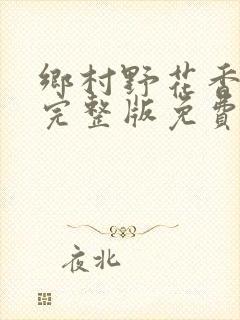 鄉村野花香
完整版免費
夜北